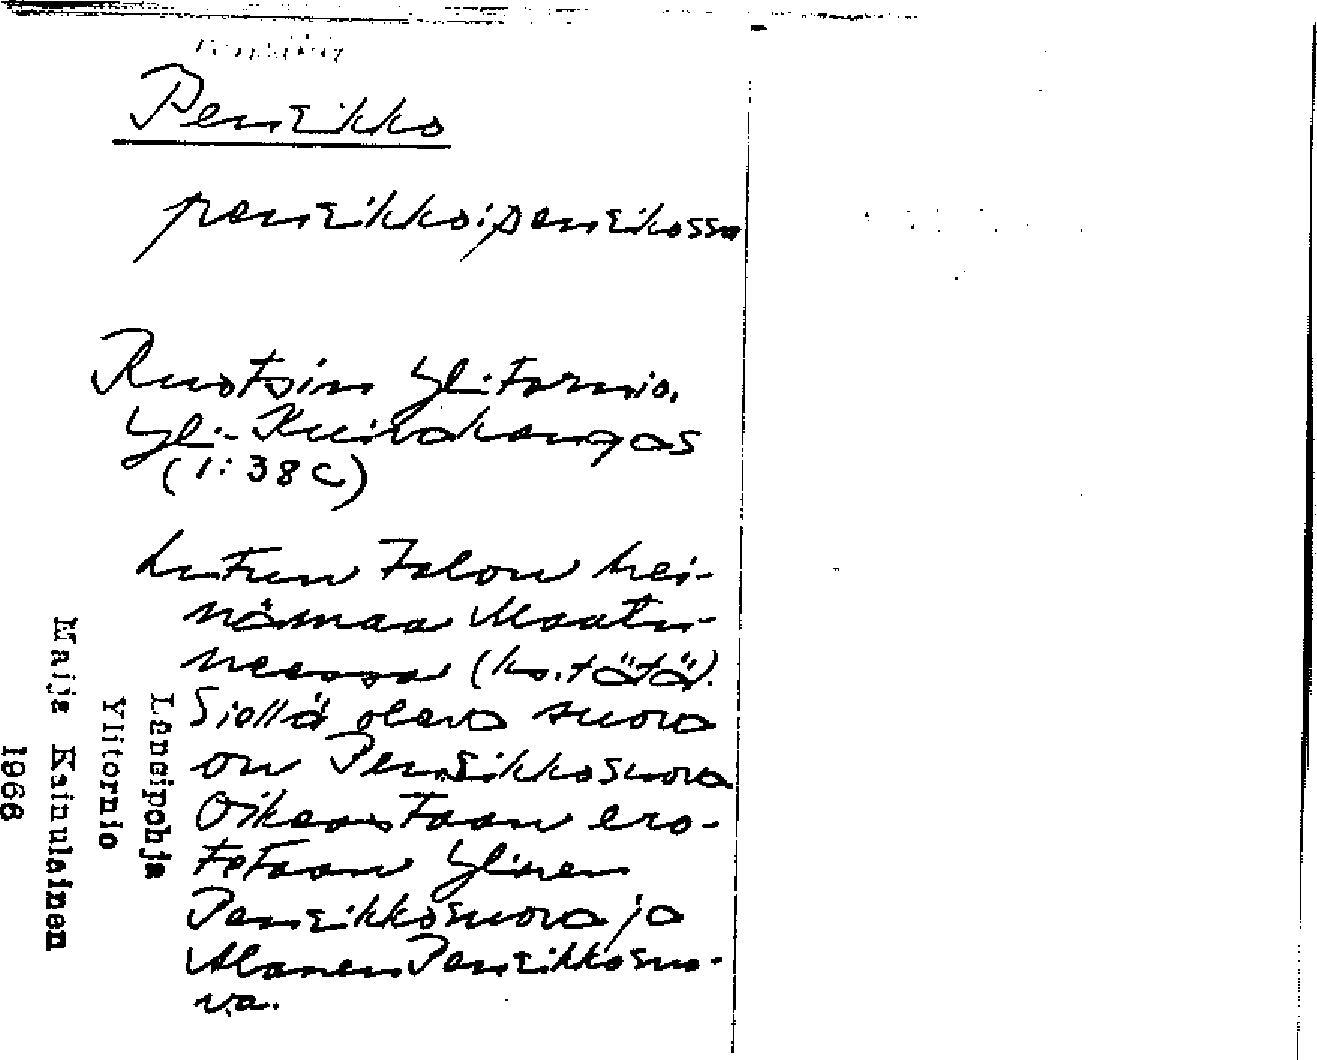 Pensikko
pensikko: pensikossa
Ruotsin Ylitornio,
Yli-Kuivakangas
(1:38 C)
Lutun talon hei-
nämaa Maatu-
neessa (ks. tätä).
Siellä oleva suova
on Pensikkosuova
Oikeastaan ero-
tetaan Ylinen
Pensikkosuova ja
Alanen Pensikkosuo-
va.
Länsipohja
Ylitornio
Maija Kainulainen
1966